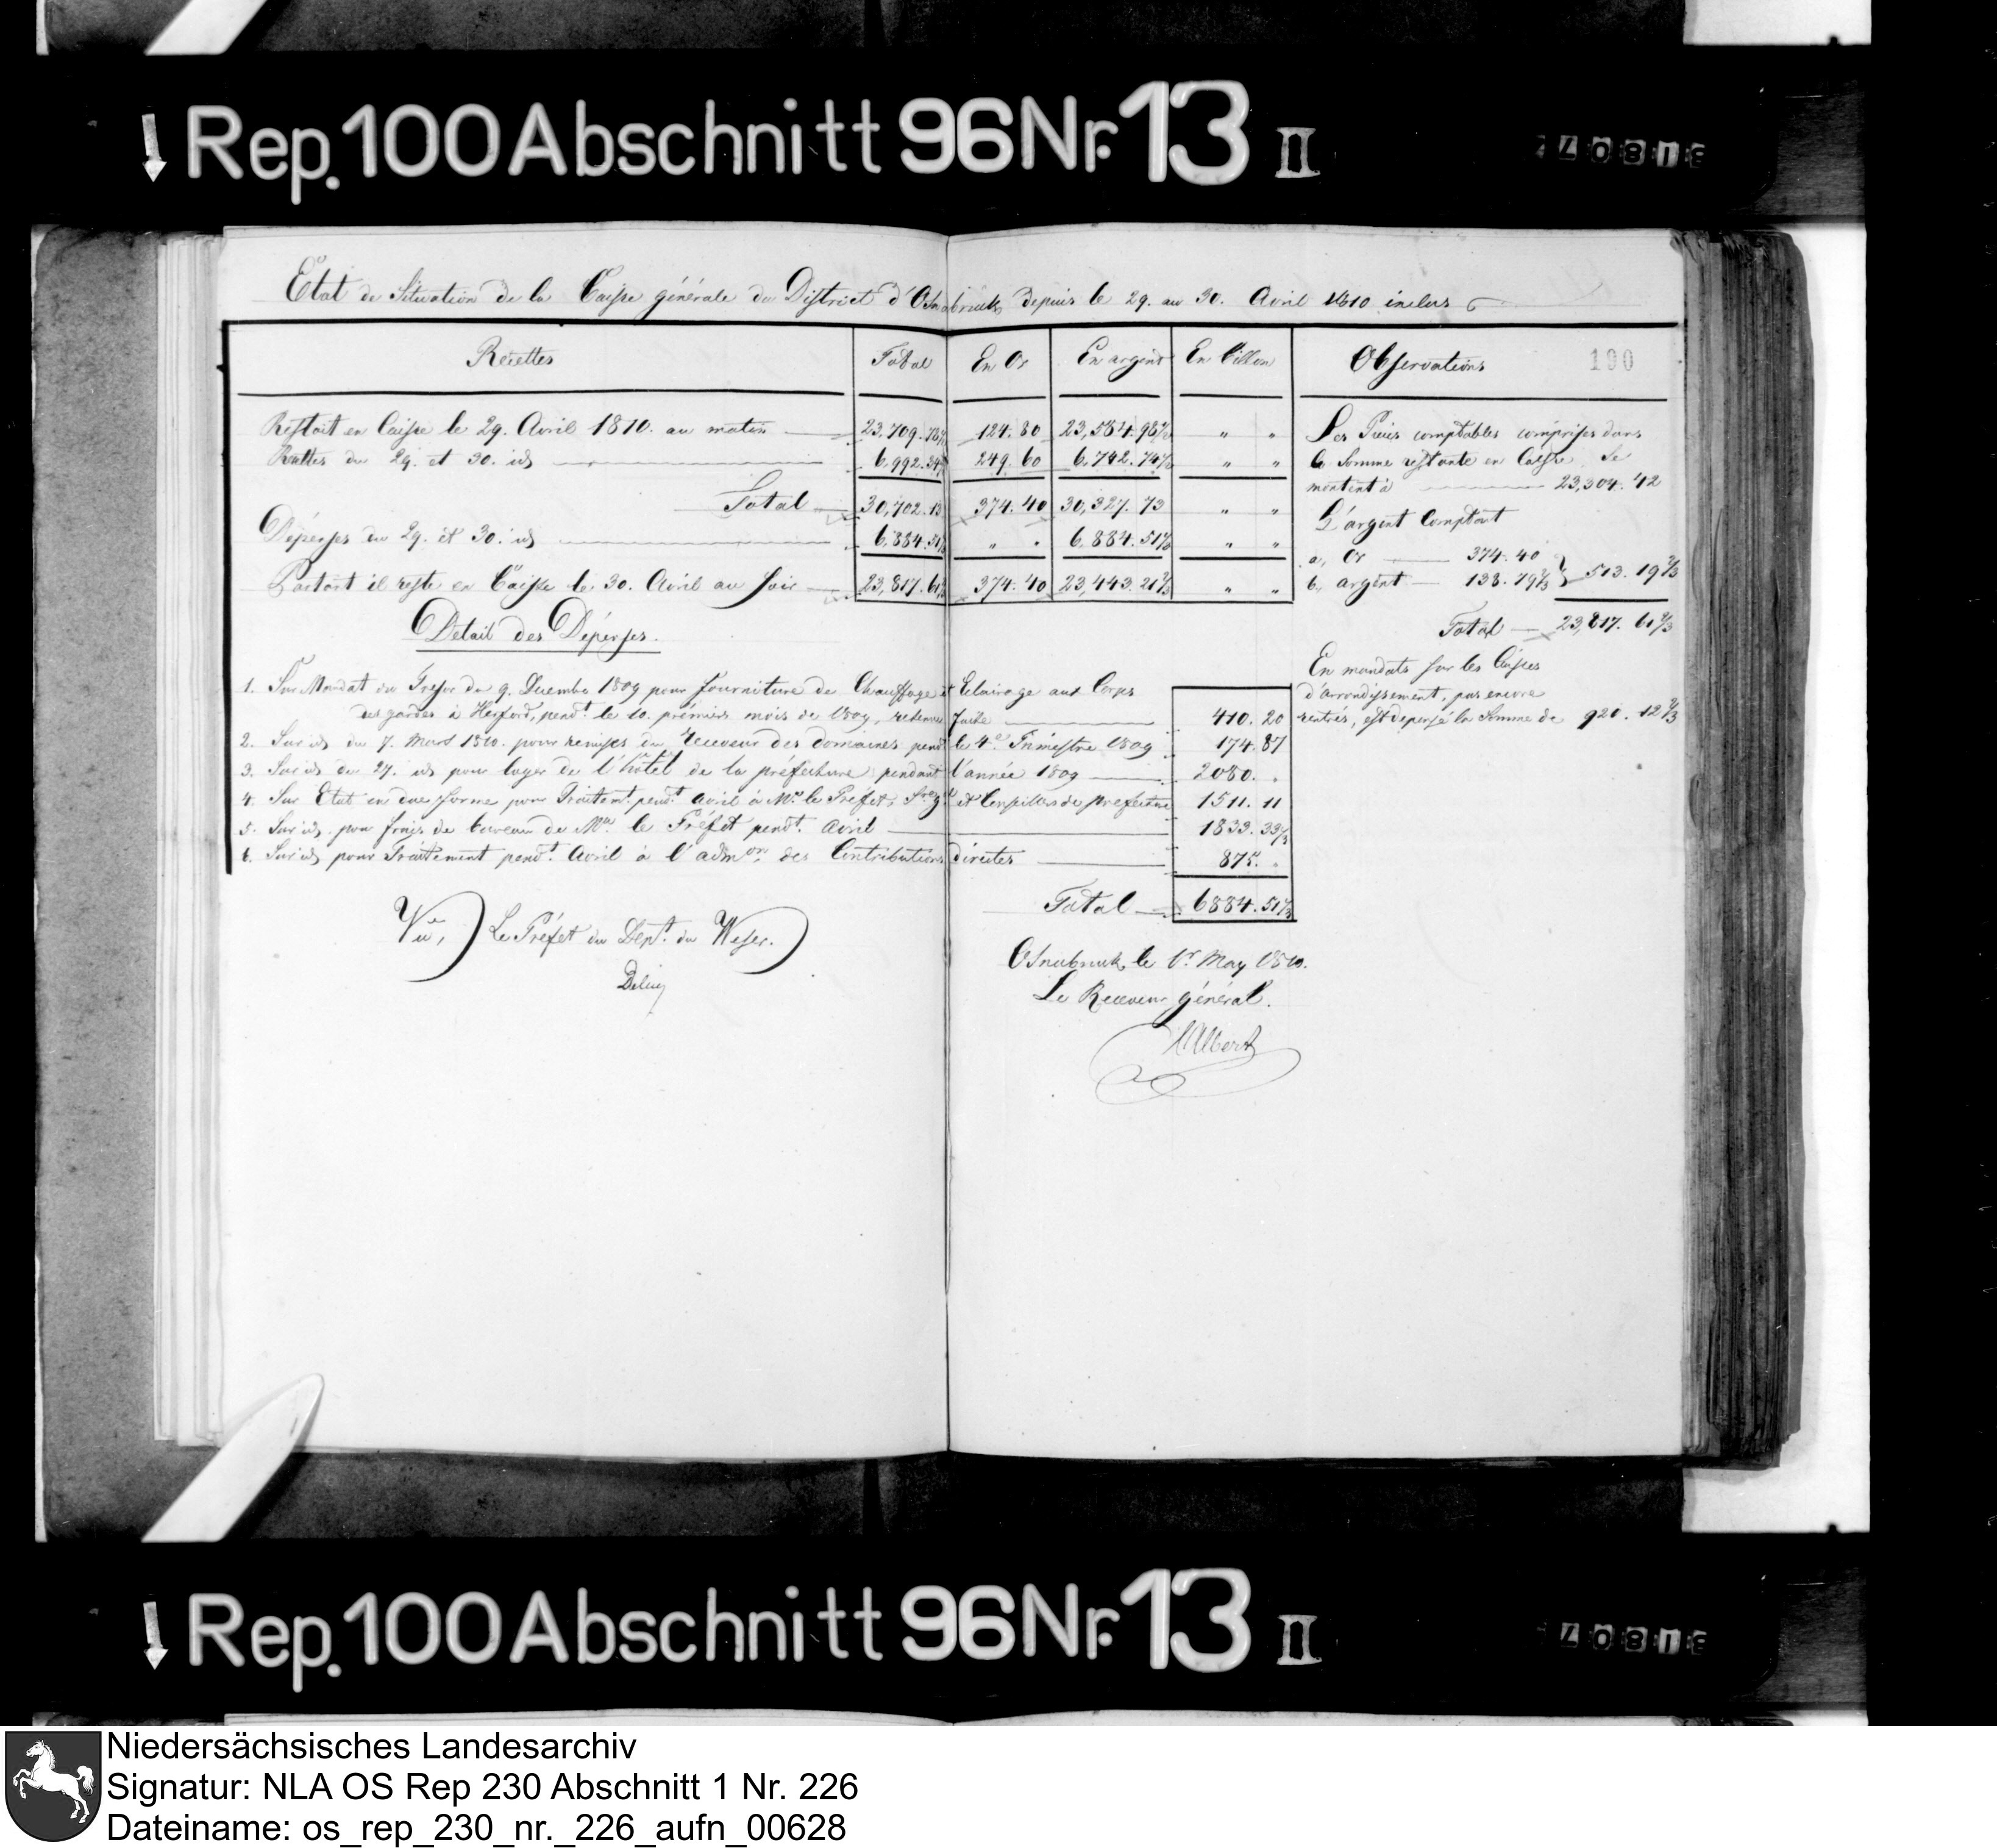 Rep. 100 Abschnitt 96 Nr. 13 II
Etat de Situation de la Caisse générale du District d'Osnabruck depuis le 29. au 30. Avril 1810 inclus
Recettes Total En Or En argent En billon Observations 190
Restoit en Caisse le 29. Avril 1810. au matin 23,709. 78 124. 80 23,584. 98 " "
Recettes du 29. et 30. id 6,992. 34 249. 60 6,742. 74 " "
Total 30,702. 13 374. 40 30,327. 73 " "
Dépenses du 29. et 30. id 6,884. 51 " " 6,884. 51 " "
Partant il reste en Caisse le 30. Avril au soir 23,817. 61 374. 40 23,443. 21 " "
Les Pièces comptables comprises dans
la Somme restante en Caisse se
montent à 23,304. 42
L'argent Comptant
a, Or 374. 40
b, argent 138. 79⅔ 513. 19⅔
Total 23,817. 61⅔
En mandats sur les Caisses
d'arrondissement, pas encore
rentrés, est depensé la Somme de 920. 12⅔
Détail des Dépenses.
1. Sur Mandat du Tresor du 9. Decembre 1809 pour Fourniture de Chauffage et Eclairage aux Corps
des gardes à Herford, pendt. le 10. prémiers mois de 1809, retenue faite 410. 20
2. Sur id du 7. Mars 1810. pour remises du Receveur des domaines pendt le 4e Trimestre 1809 174. 87
3. Sur id du 27. id pour loyer de l'hôtel de la préfecture pendant l'année 1809 2080. .
4. Sur Etat en due forme pour Traitemt. pendt. Avril à Mr. le Préfet, et Conseillers de prefecture 1511. 11
5. Sur id. pour frais de bureau de Mr. le Préfet pendt. Avril 1833. 33⅓
6. Sur id pour Traitement pendt. Avril à l'admon. des Contributions directes 875. .
Total 6884. 51
Vu, Le Préfet du Dept. du Weser.
Delius
Osnabruck, le 1r. May 1810.
Le Receveur général.
Albert
Rep. 100 Abschnitt 96 Nr. 13 II
Niedersächsisches Landesarchiv
Signatur: NLA OS Rep 230 Abschnitt 1 Nr. 226
Dateiname: os_rep_230_nr._226_aufn_00628